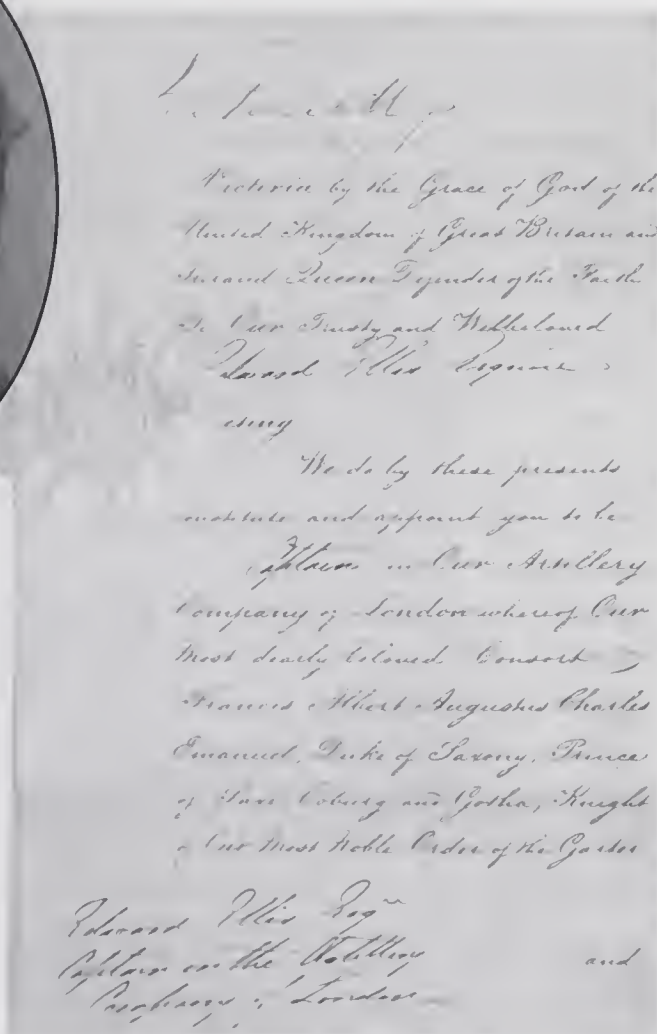 Victoria by the Grace of God of the
United Kingdom of Great Britain and
Ireland Queen Defender of the Faith
To Our Trusty and Wellbeloved
Edward Ellis Esquire
Greeting
We do by these presents
constitute and appoint you to be
Captain in Our Artillery
Company of London whereof Our
Most dearly beloved Consort
Francis Albert Augustus Charles
Emanuel, Duke of Saxony, Prince
of Saxe Coburg and Gotha, Knight
of Our Most Noble Order of the Garter
and
Edward Ellis Esqre
Captain in the Artillery
Company of London